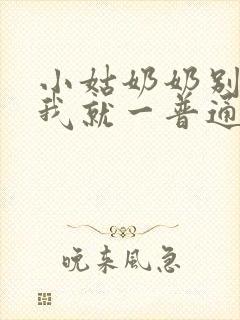 小姑奶奶别
我就一普通
晚来风急